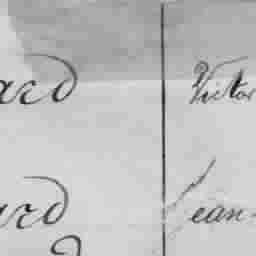 ard Victor
ard Jean-